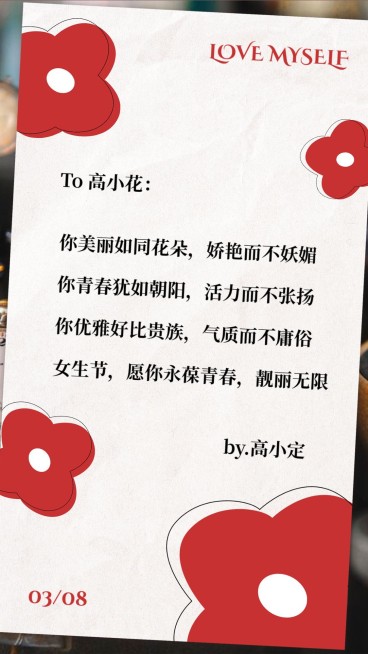 LOVE MYSELF
To 高小花：
你美丽如同花朵，娇艳而不妖媚
你青春犹如朝阳，活力而不张扬
你优雅好比贵族，气质而不庸俗
女生节，愿你永葆青春，靓丽无限
by.高小定
03/08